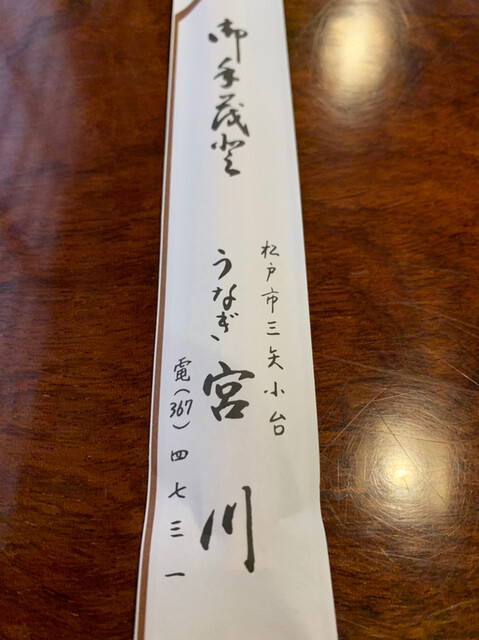 御手茂登
松戸市三矢小台
うなぎ宮川
電(367)四七三一